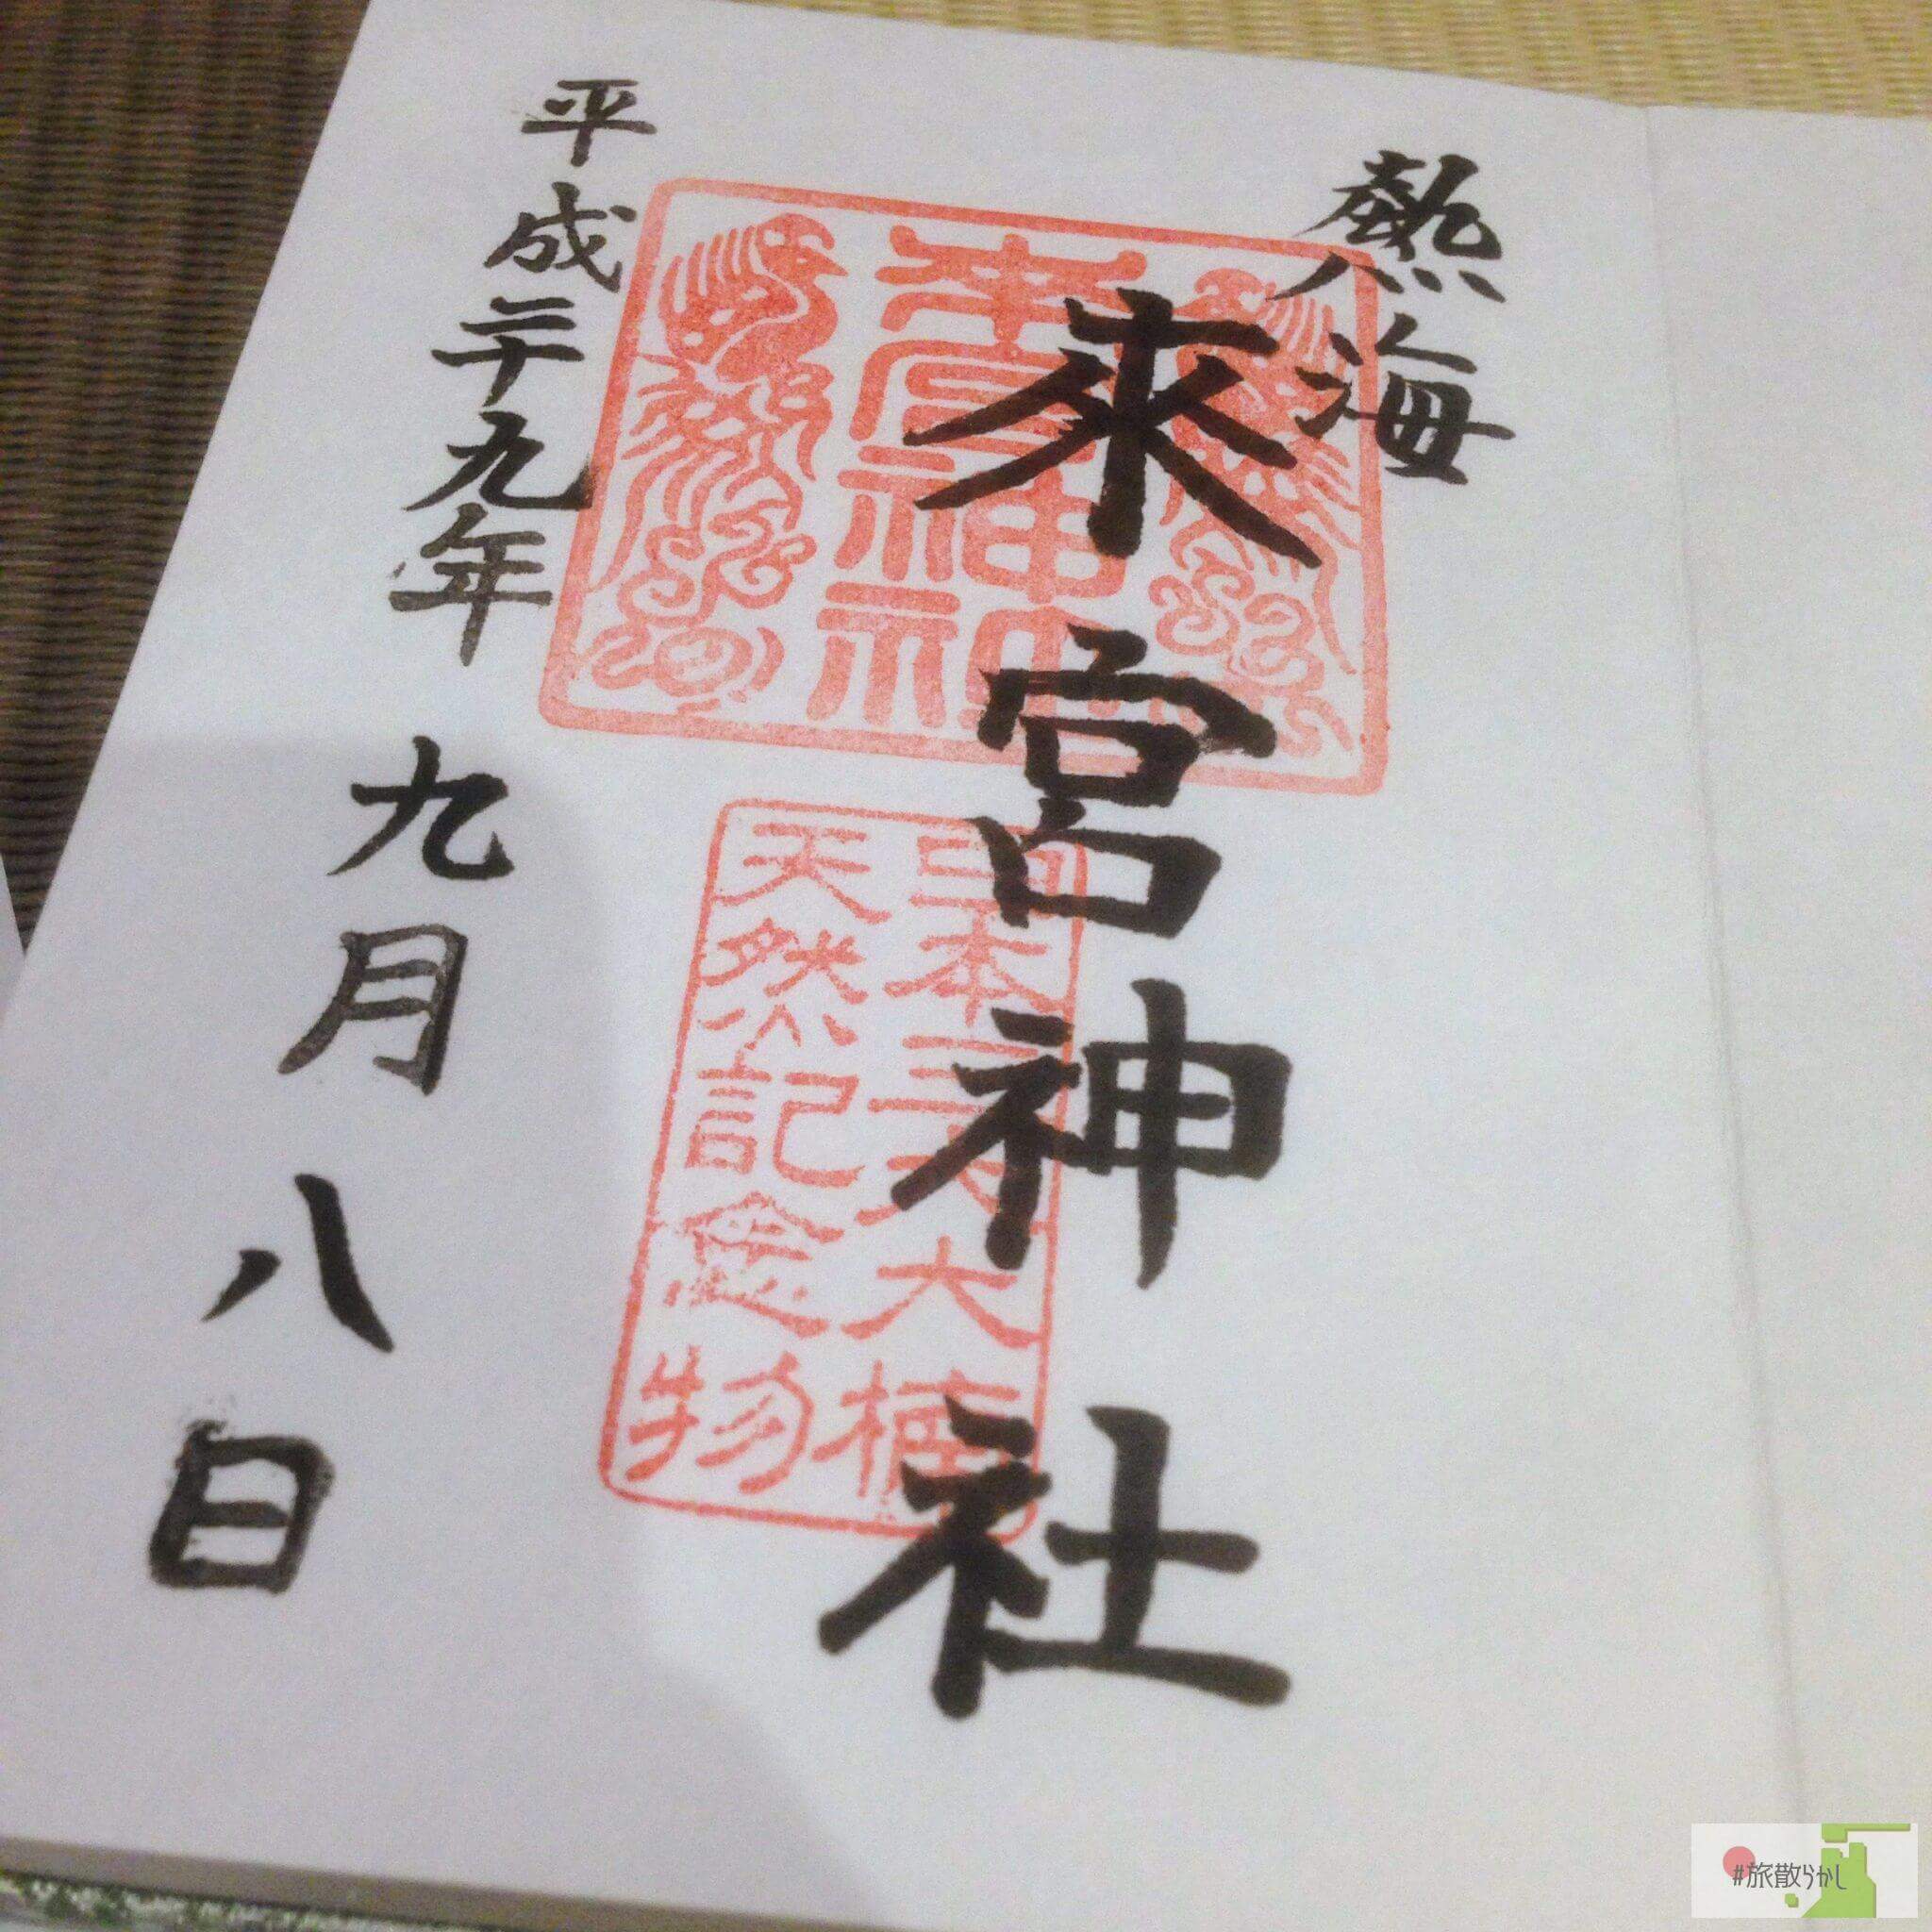 熱海
來宮神社
來宮神社
日本三大大楠
天然記念物
平成二十九年
九月八日
#旅散らかし